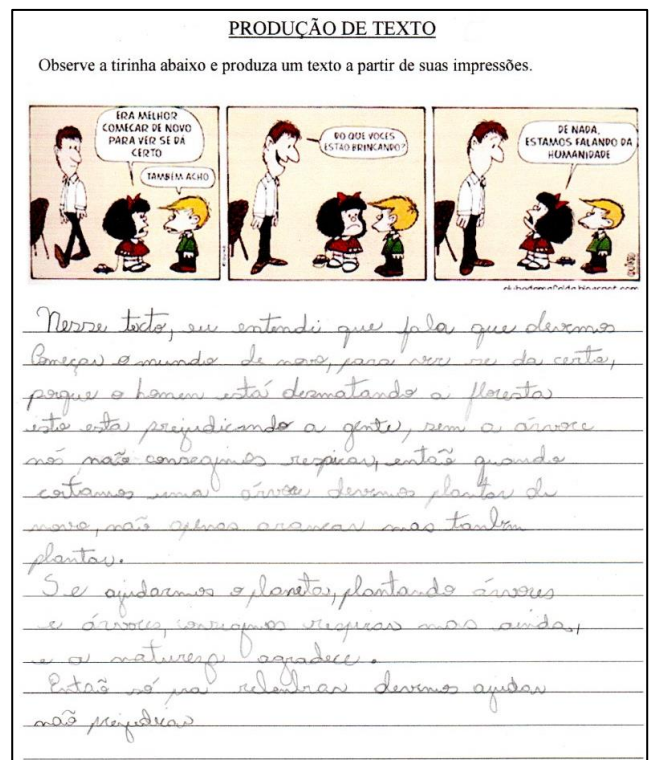 PRODUÇÃO DE TEXTO
Observe a tirinha abaixo e produza um texto a partir de suas impressões.
ERA MELHOR
COMEÇAR DE NOVO
PARA VER SE DÁ
CERTO
TAMBÉM ACHO
DO QUE VOCES
ESTÃO BRINCANDO?
DE NADA,
ESTAMOS FALANDO DA
HUMANIDADE
clubedamafalda.blogspot.com
Nesse texto, eu entendi que fala que devemos
Começar o mundo de novo, para ver se da certo,
porque o homen está desmatando a floresta
isto esta prejudicando a gente, sem a árvore
nós não conseguimos respirar, então quando
cortamos uma árvore devemos plantar de
novo, não apenas arancar mas tanbem
plantar.
Se ajudarmos o planeta, plantando árvores
e árvores, conseguimos respirar mas ainda,
e a natureza agradece.
Então só pra relenbrar devemos ajudar
não prejudicar